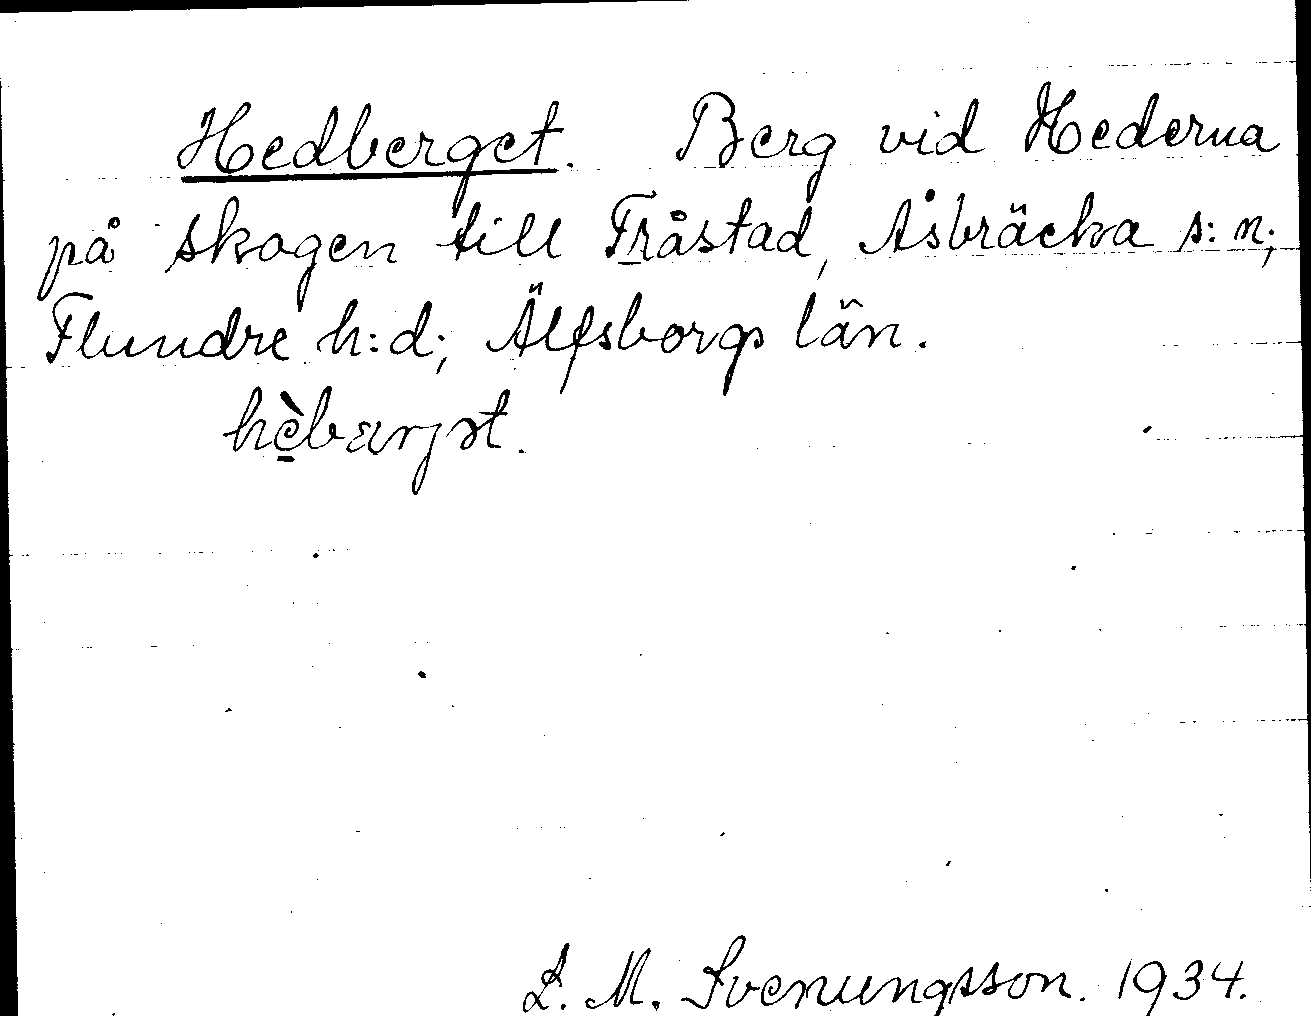 Hedberget. Berg vid Hederna
på skogen till Fråstad, Åsbräcka s:n;
Flundre h:d; Älfsborgs län.
L. M. Svenungsson. 1934.